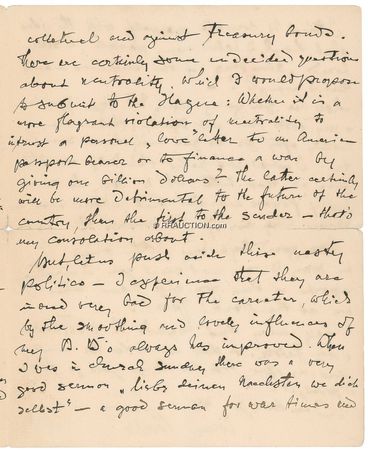 collateral and against Treasury bonds.
There are certainly some undecided questions
about neutrality, which I would propose
to submit to the Hague: Whether it is a
more flagrant violation of neutrality to
intrust a personel „love" letter to an American
passport bearer or to finance a war by
giving one billion dollars? The latter certainly
will be more detrimental to the future of the
country, than the first to the sender – that's
my consolation about.
© RRAUCTION.com
But let us push aside this nasty
politics – I experience that they are
indeed very bad for the caracter, which
by the smoothing and lovely influences of
my B. B's always has improved. When
I was in church Sunday there was a very
good sermon „liebe deinen Naechsten wie dich
selbst" – a good sermon for war times and